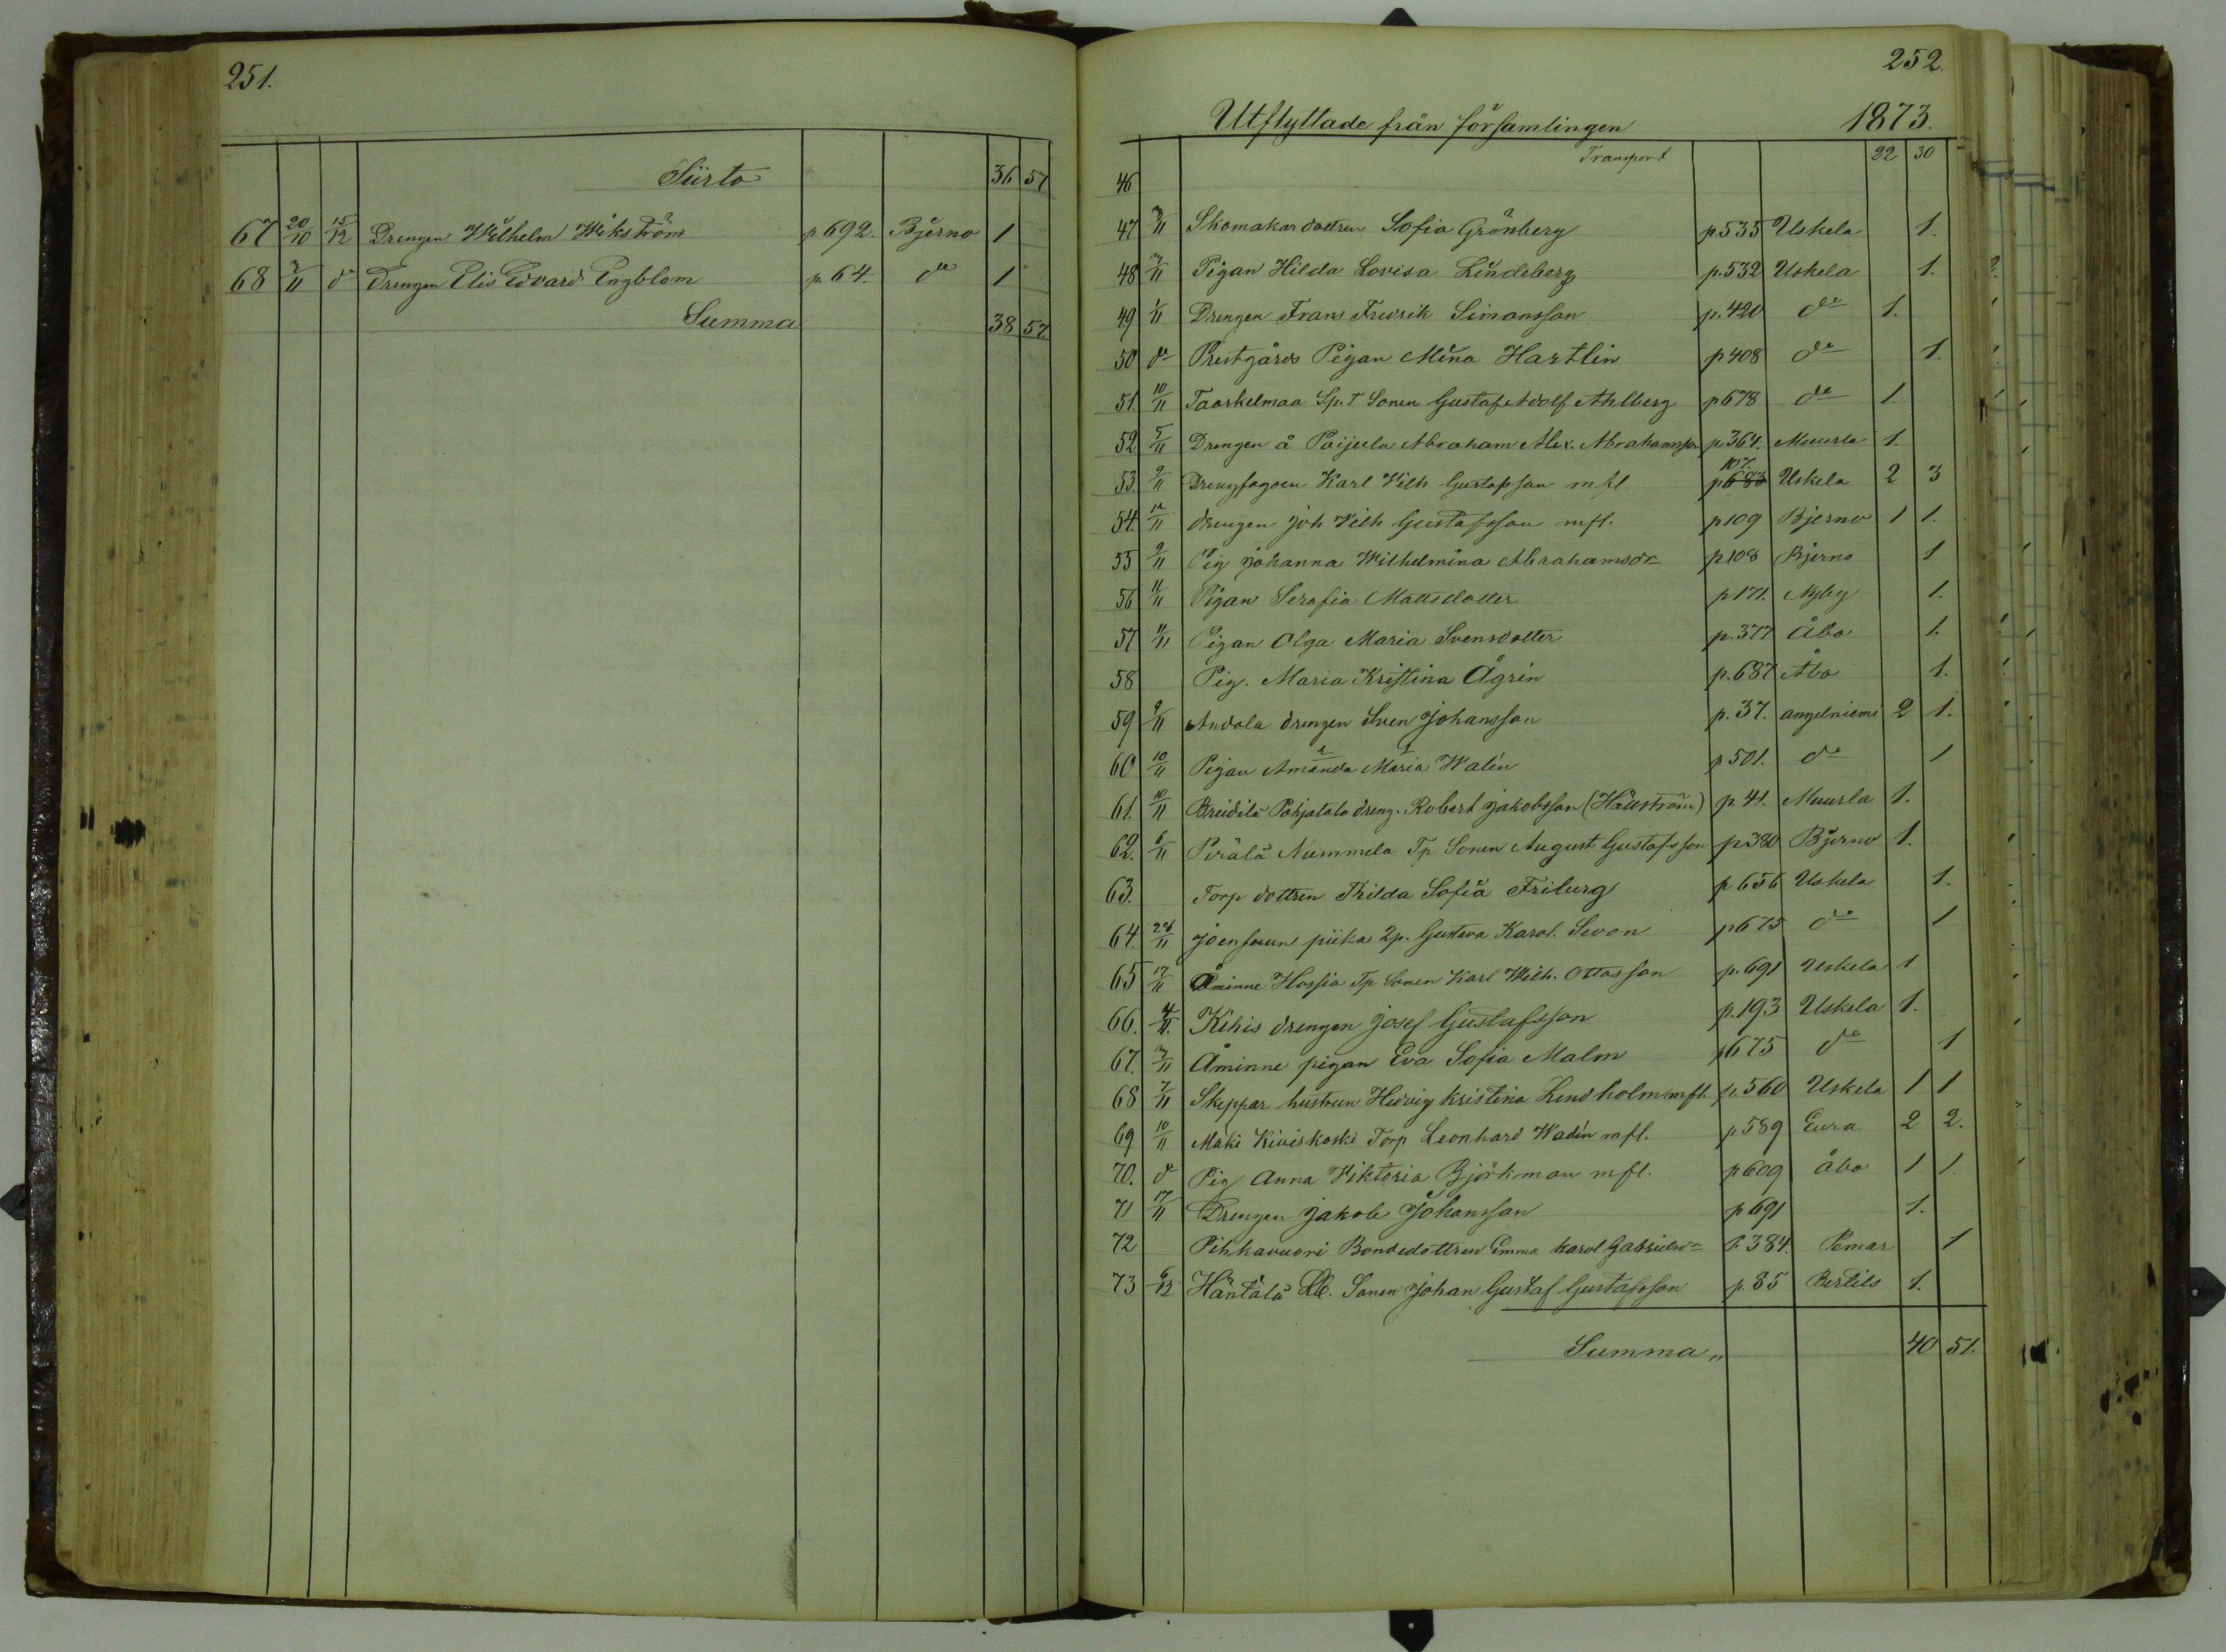 251.
Siirto 36 57
67 20/10 15/12 Drengen Wilhelm Wikström p 692. Bjerno 1
68 3/11 do Drengen Elis Edvard Engblom p. 64. do 1
Summa 38 57.
252.
Utflyttade från församlingen 1873.
Transport 22 30
46
47 3/11 Skomakardottren Sofia Grönberg p.535 Uskela 1.
48 3/11 Pigan Hilda Lovisa Lindeberg p.532 Uskela 1.
49 1/11 Drengen Frans Fredrik Simonsson p.420 do 1.
50 do Prestgårds Pigan Mina Hartlin p 408 do 1.
51. 10/11 Taarkelmaa Sp. T Sonen Gustaf Adolf Ahlberg p 678 do 1.
52. 5/11 Drengen å Paijula Abraham Alex. Abrahamsson p.364. Muurla 1.
53. 9/11 Drengfogden Karl Vilh Gustafsson mfl p 683 107. Uskela 2 3
54. 12/11 drengen Joh Vilh Gustafsson mfl. p 109 Bjerno 1 1.
55 9/11 Pig Johanna Wilhelmina Abrahamsdr p 108 Bjerno 1
56 11/11 Pigan Serafia Mattsdotter p 171. Nyby 1.
57 11/11 Pigan Olga Maria Svensdotter p. 377 Åbo 1.
58 Pig. Maria Kristina Ågrin p. 687 Åbo 1.
59 9/11 Andola drengen Sven Johansson p. 37. angelniemi 2 1.
60 10/11 Pigan Amanda Maria Walin p 501. do 1
61. 10/11 Breidilä Pohjatalo dreng. Robert Jakobsson (Hällström) p. 41. Muurla 1.
62. 6/11 Perälä Nummela Tp Sonen August Gustafsson p 380 Bjerno 1.
63. Torp dottren Thilda Sofia Friberg p 656 Uskela 1.
64. 28/11 Joensuun piika 2p. Gustava Karol. Sevon p 675 do 1
65 17/11 Åminne Hossia Tp Sonen Karl Wilh. Ottosson p. 691 Uskela 1
66. 4/11. Kihis drengen Josef Gustafsson p. 193 Uskela 1.
67. 3/11 Åminne pigan Eva Sofia Malm p 675 do 1
68 7/11 Skeppar hustrun Hedvig Kristina Lindholm mfl. p. 560 Uskela 1 1
69 10/11 Mäki Kiviskoski Torp Leonhard Wadén mfl. p 589 Eura 2 2.
70. do Pig Anna Viktoria Björkman mfl. p 609 Åbo 1. 1.
71 17/11 Drengen Jakob Johansson p 691 1.
72 Pihkavuori Bondedottren Emma Karol Gabrielsdr P. 384. Pemar 1
73 6/12 Häntälä Sonen Johan Gustaf Gustafsson p. 85 Bertils 1.
Summa 40 51.